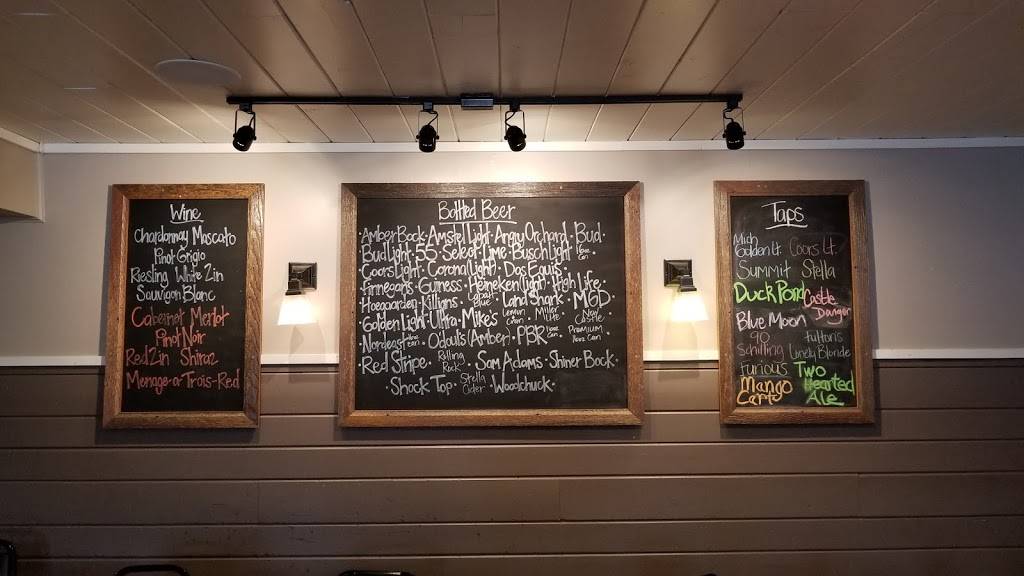 Wine
Chardonnay Moscato
Pinot Grigio
Riesling White Zin
Sauvigon Blanc
Cabernet Merlot
Pinot Noir
Red Zin Shiraz
Menage-a-Trois-Red
Bottled Beer
·Amber Bock·Amstel Light·Angry Orchard·Bud·
Bud Light·55·Select·Lime·Busch Light
Coors Light·Corona(Light)·Dos Equis·
Finnegans·Guiness·Heineken(Light)·High Life·
Hoegaarden·Killians·Land Shark·MGD·
Golden Light·Ultra·Mike's
Nordeast·Odouls(Amber)·PBR·Premium
Red Stripe·Rolling Rock·Sam Adams·Shiner Bock·
·Shock Top·Stella Cider·Woodchuck·
Taps
Mich Golden Lt. Coors Lt
Summit Stella
Duck Pond Castle Danger
Blue Moon
90 Schilling Fulton's Lonely Blonde
Furious Two Hearted Ale
Mango Cart